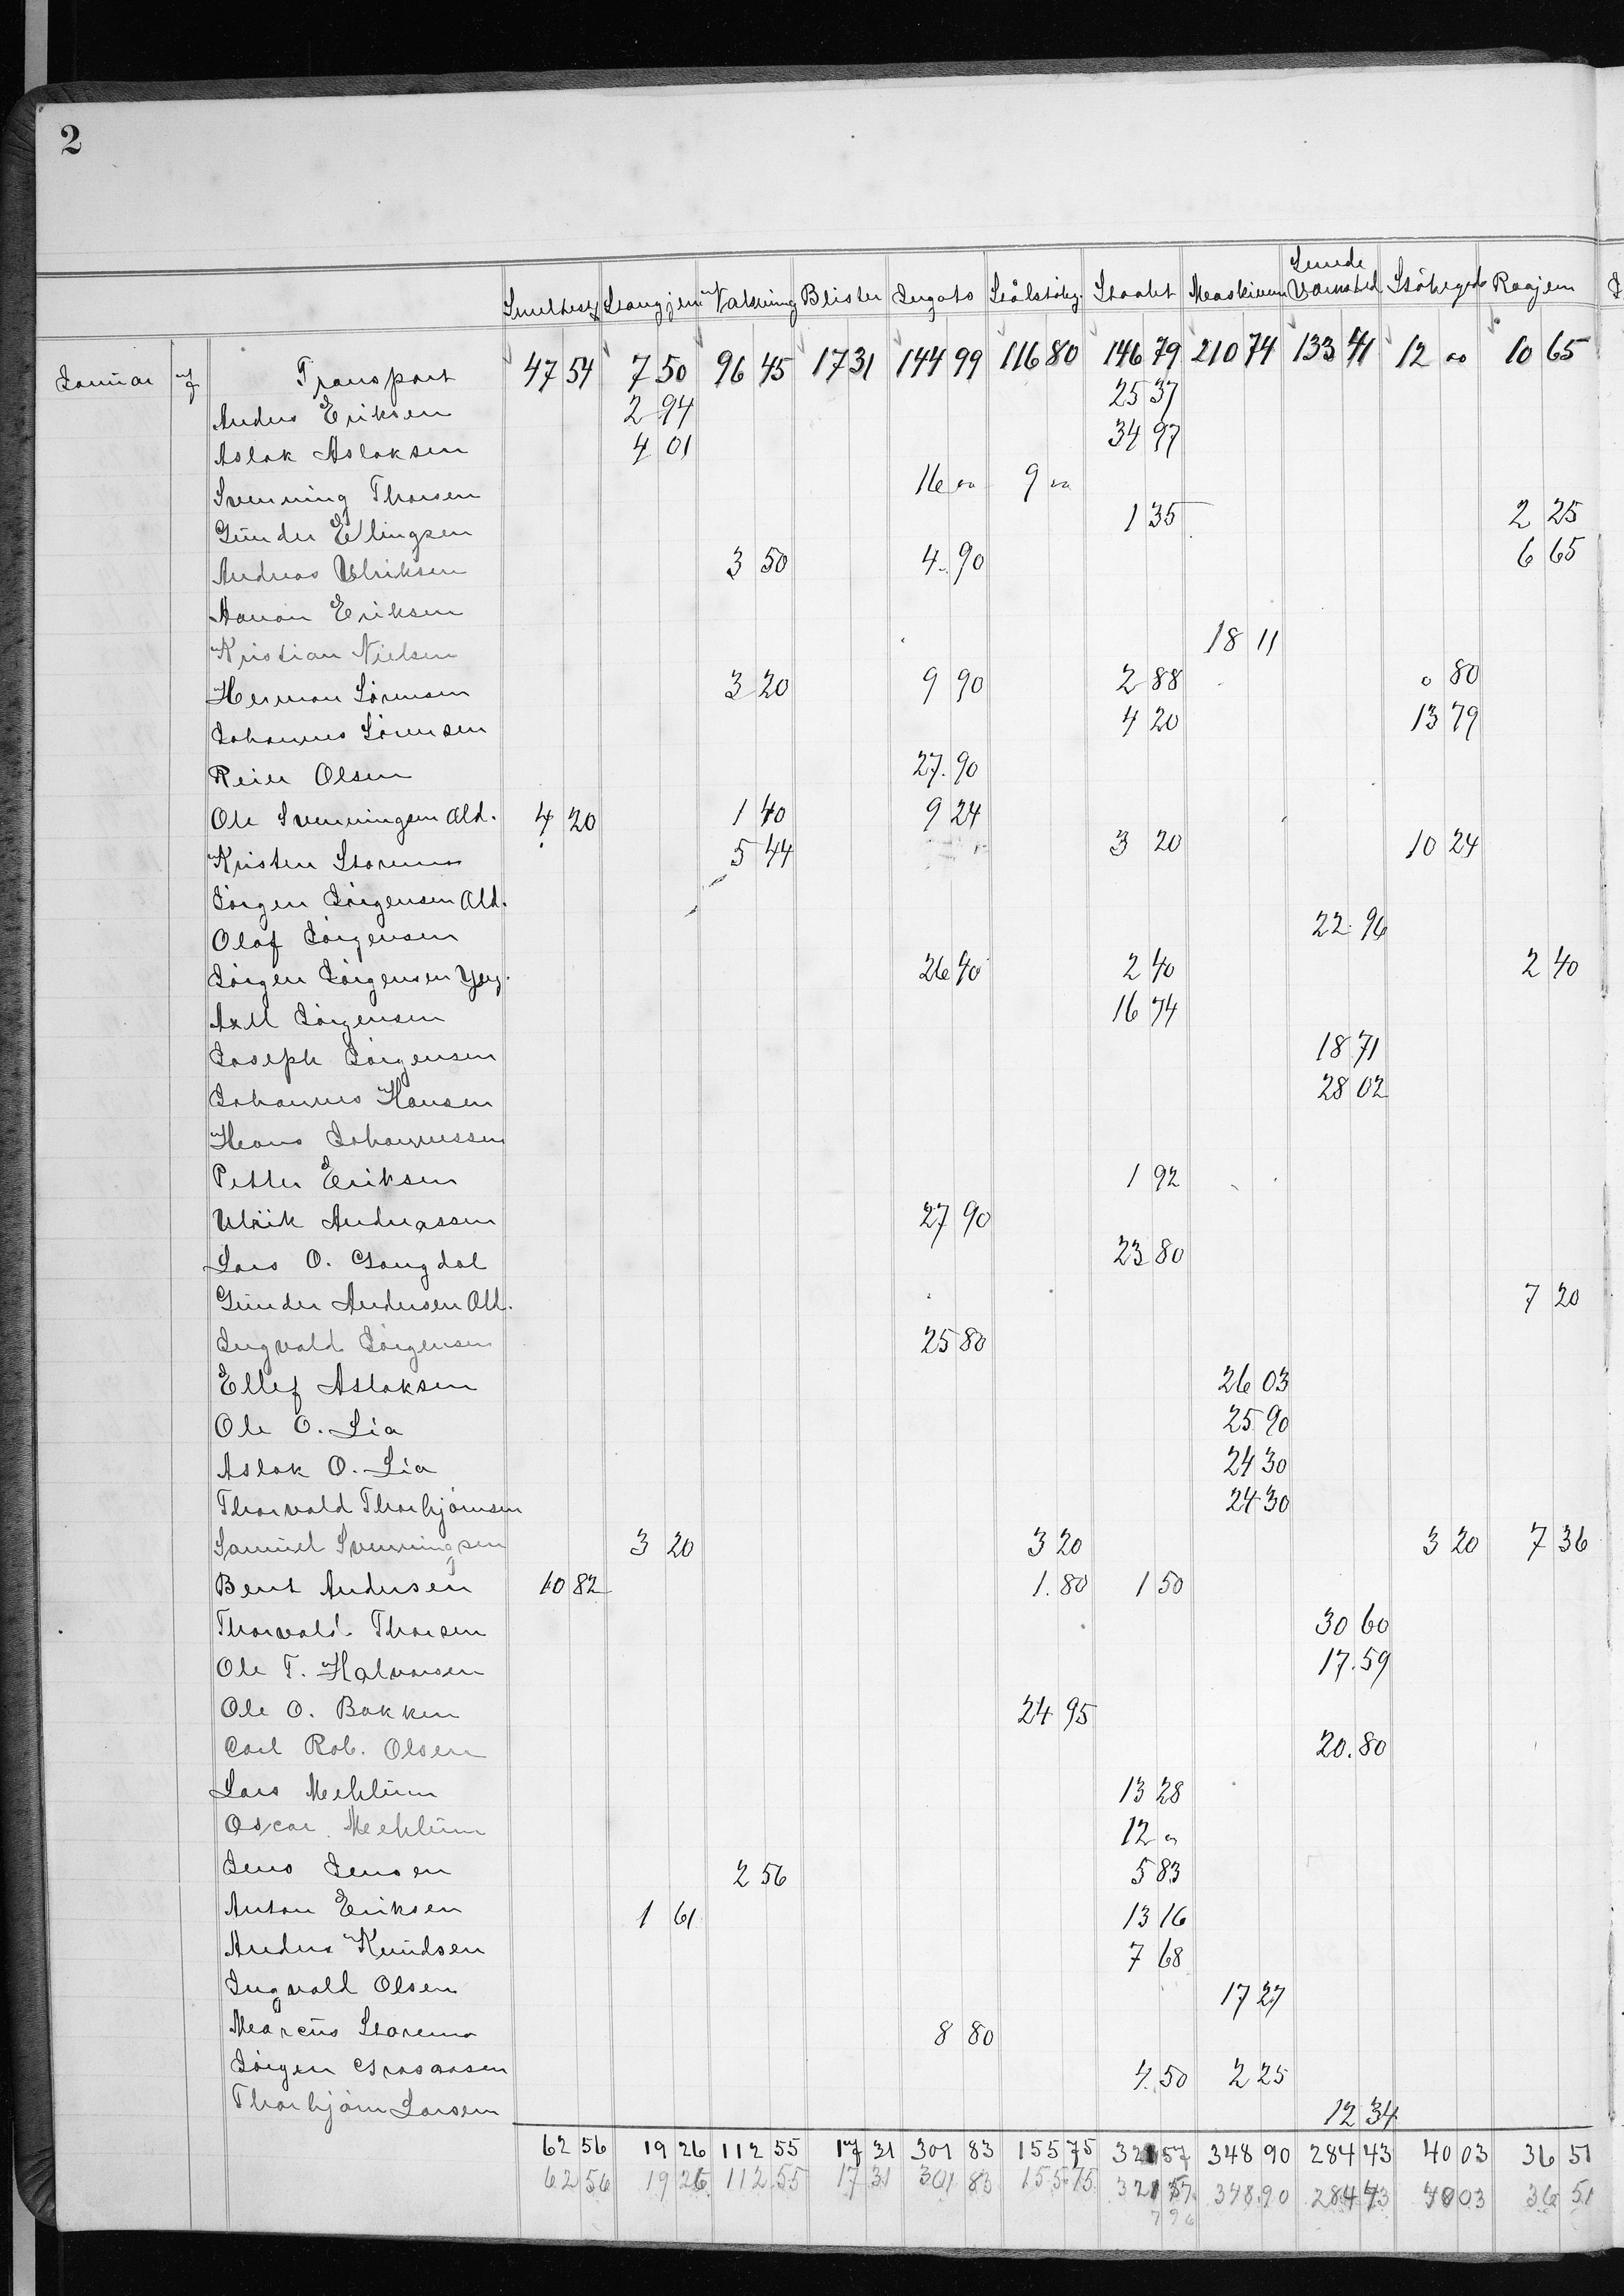 2
Smeltning Stangjern Valsning Blister Ingots Stålstøbg. Staalet Maskinen Smede Værksted Støbegods Raajern
Januar Transport 47 54 7 50 96 45 17 31 144 99 116 80 146 79 210 74 133 41 12 oo 10 65
Anders Eriksen 2 94 25 37
Aslak Aslaksen 4 01 34 97
Svenning Thorsen 16 oo 9 oo
Gunder Ellingsen 1 35 2 25
Andreas Ulriksen 3 50 4 90 6 65
Eriksen
Kristian Nielsen 18 11
Herman Sörensen 3 20 9 90 2 88 o 80
Johannes Sörensen 4 20 13 79
Reier Olsen 27.90
Ole Svenningsen Ald. 4 20 1 40 9 24
Kristen Storemo 5 44 3 20 10 24
Jörgen Jörgensen Ald.
Olaf Jörgensen 22.96
Jörgen Jörgensen Yng. 26 40 2 40 2 40
Axel Jörgensen 16 74
Joseph Jörgensen 18 71
Johannes Hansen 28 02
Hans Johannessen
Petter Eriksen 1 92
Ulrik Andreassen 27 90
Lars O. Gangdal 23 80
Gunder Andersen Ald. 7 20
Ingvald Jörgensen 25 80
Ellef Aslaksen 26 03
Ole O. Lia 25 90
Aslak O. Lia 24 30
Thorvald Thorbjörnsen 24 30
Samuel Svenningsen 3 20 3 20 3 20 7 36
Bent Andersen 10 82 1.80 1 50
Thorvald Thorsen 30 60
Ole T. Halvorsen 17.59
Ole O. Bakken 24 95
Carl Rob. Olsen 20.80
Lars Mehlum 13 28
Oscar Mehlum 12 oo
Jens Jensen 2 56 5 83
Anton Eriksen 1 61 13 16
Anders Knudsen 7 68
Ingvald Olsen 17 27
Marcus Storemo 8 80
Jörgen 4.50 2 25
Thorbjörn Larsen 12 34
62 56 19 26 112 55 17 31 301 83 155 75 321 57 348 90 284 43 40 03 36 51
62 56 19 26 112 55 17 31 301 83 155 75 321 57 348.90 284 43 40 03 36 51
7 96